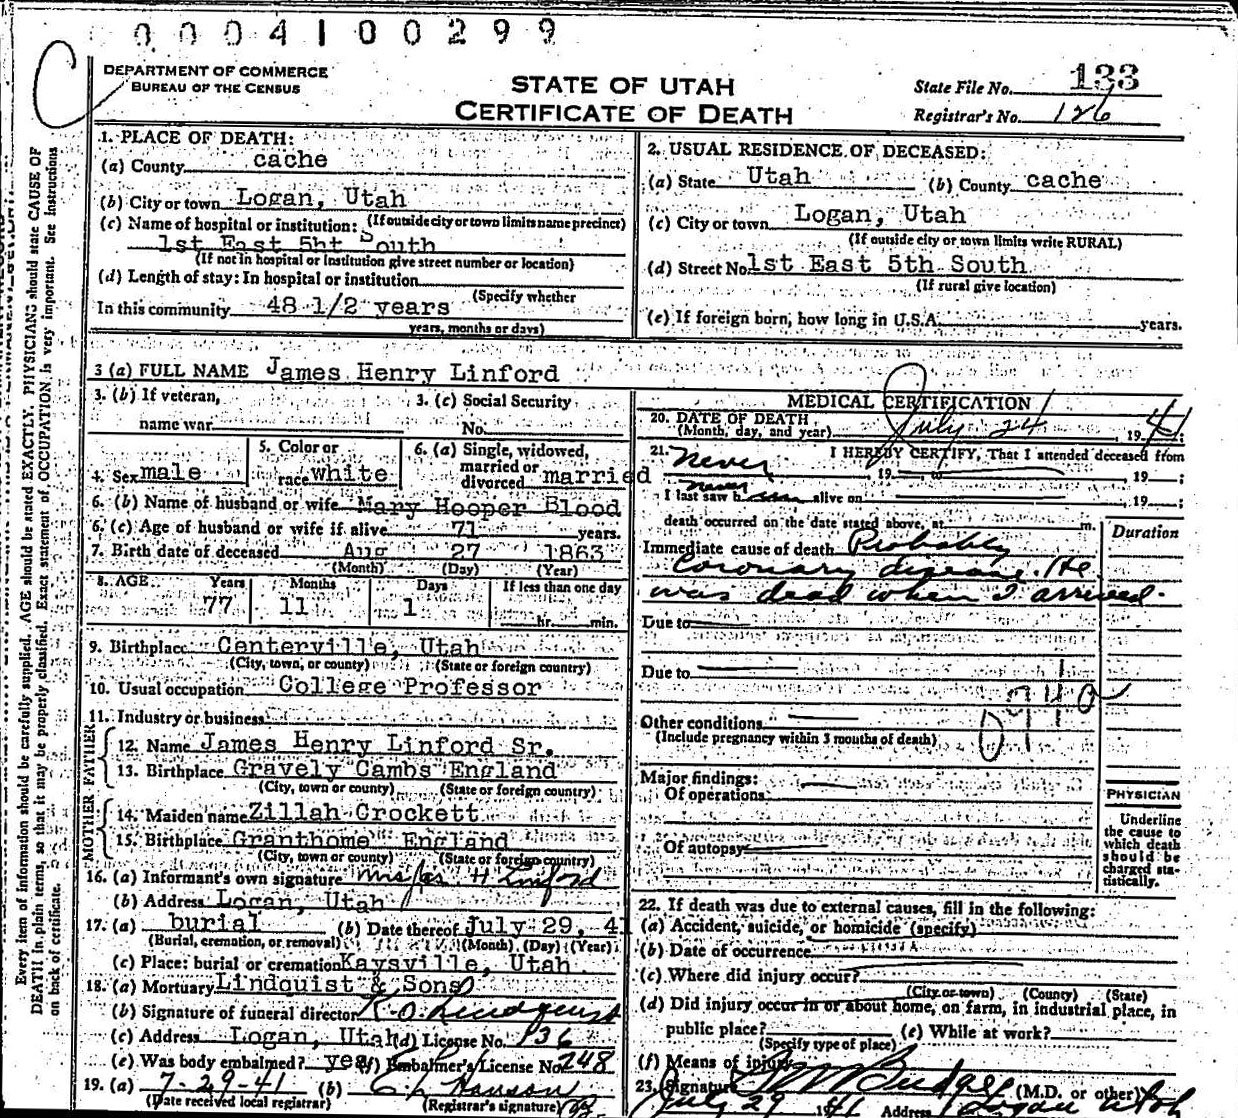 0004100299
DEPARTMENT OF COMMERCE
BUREAU OF THE CENSUS
STATE OF UTAH
CERTIFICATE OF DEATH
State File No. 133
Registrar's No. 126
Every item of information should be carefully supplied. AGE should be stated EXACTLY. PHYSICIANS should state CAUSE OF
DEATH in plain terms, so that it may be properly classified. Exact statement of OCCUPATION is very important. See instructions
on back of certificate.
1. PLACE OF DEATH:
(a) County cache
(b) City or town Logan, Utah
(If outside city or town limits name precinct)
(c) Name of hospital or institution:
1st East 5ht South
(If not in hospital or institution give street number or location)
(d) Length of stay: In hospital or institution
(Specify whether
In this community 48 1/2 years
years, months or days)
2. USUAL RESIDENCE OF DECEASED:
(a) State Utah (b) County cache
(c) City or town Logan, Utah
(If outside city or town limits write RURAL)
(d) Street No. 1st East 5th South
(If rural give location)
(e) If foreign born, how long in U.S.A. years.
3 (a) FULL NAME James Henry Linford
3. (b) If veteran,
name war
3. (c) Social Security
No.
4. Sex male
5. Color or
race white
6. (a) Single, widowed,
married or
divorced married
6. (b) Name of husband or wife Mary Hooper Blood
6. (c) Age of husband or wife if alive 71 years.
7. Birth date of deceased Aug 27 1863
(Month) (Day) (Year)
8. AGE Years Months Days If less than one day
77 11 1 hr. min.
9. Birthplace Centerville, Utah
(City, town, or county) (State or foreign country)
10. Usual occupation College Professor
11. Industry or business
FATHER
12. Name James Henry Linford Sr.
13. Birthplace Gravely Cambs England
(City, town or county) (State or foreign country)
MOTHER
14. Maiden name Zillah Crockett
15. Birthplace Granthome England
(City, town or county) (State or foreign country)
16. (a) Informant's own signature Mrs Jas H Linford
(b) Address Logan, Utah
17. (a) burial (b) Date thereof July 29, 41
(Burial, cremation, or removal) (Month) (Day) (Year)
(c) Place: burial or cremation Kaysville, Utah
18. (a) Mortuary Lindquist & Sons
(b) Signature of funeral director R. O. Lindquist
(c) Address Logan, Utah (d) License No. 136
(e) Was body embalmed? yes (f) Embalmer's License No. 248
19. (a) 7-29-41 (b) Hanson
(Date received local registrar) (Registrar's signature)
MEDICAL CERTIFICATION
20. DATE OF DEATH
(Month, day, and year) July 24, 1941;
21. I HEREBY CERTIFY, That I attended deceased from
never 19 to 19 ;
never
I last saw h im alive on 19 ;
death occurred on the date stated above, at m.
Duration
Immediate cause of death Probably
Coronary disease. He
was dead when I arrived.
Due to
Due to
094a
Other conditions
(Include pregnancy within 3 months of death)
Major findings:
Of operations
Of autopsy
PHYSICIAN
Underline
the cause to
which death
should be
charged sta-
tistically.
22. If death was due to external causes, fill in the following:
(a) Accident, suicide, or homicide (specify)
(b) Date of occurrence
(c) Where did injury occur?
(City or town) (County) (State)
(d) Did injury occur in or about home, on farm, in industrial place, in
public place? (e) While at work?
(Specify type of place)
(f) Means of injury
23. Signature Budge (M.D. or other)
July 29 1941 Address Logan Utah